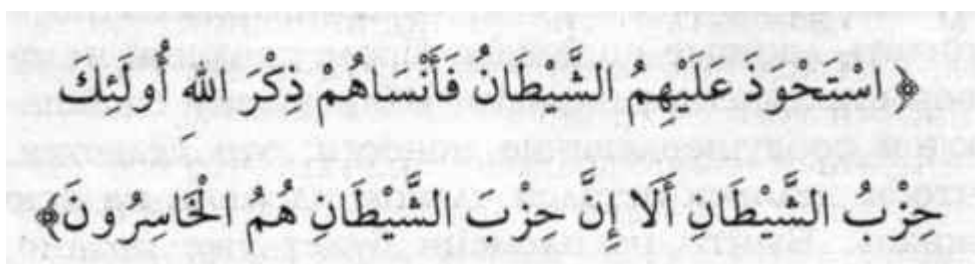 ﴿ اسْتَحْوَذَ عَلَيْهِمُ الشَّيْطَانُ فَأَنْسَاهُمْ ذِكْرَ اللهِ أُولَئِكَ
حِزْبُ الشَّيْطَانِ أَلَا إِنَّ حِزْبَ الشَّيْطَانِ هُمُ الْخَاسِرُونَ﴾